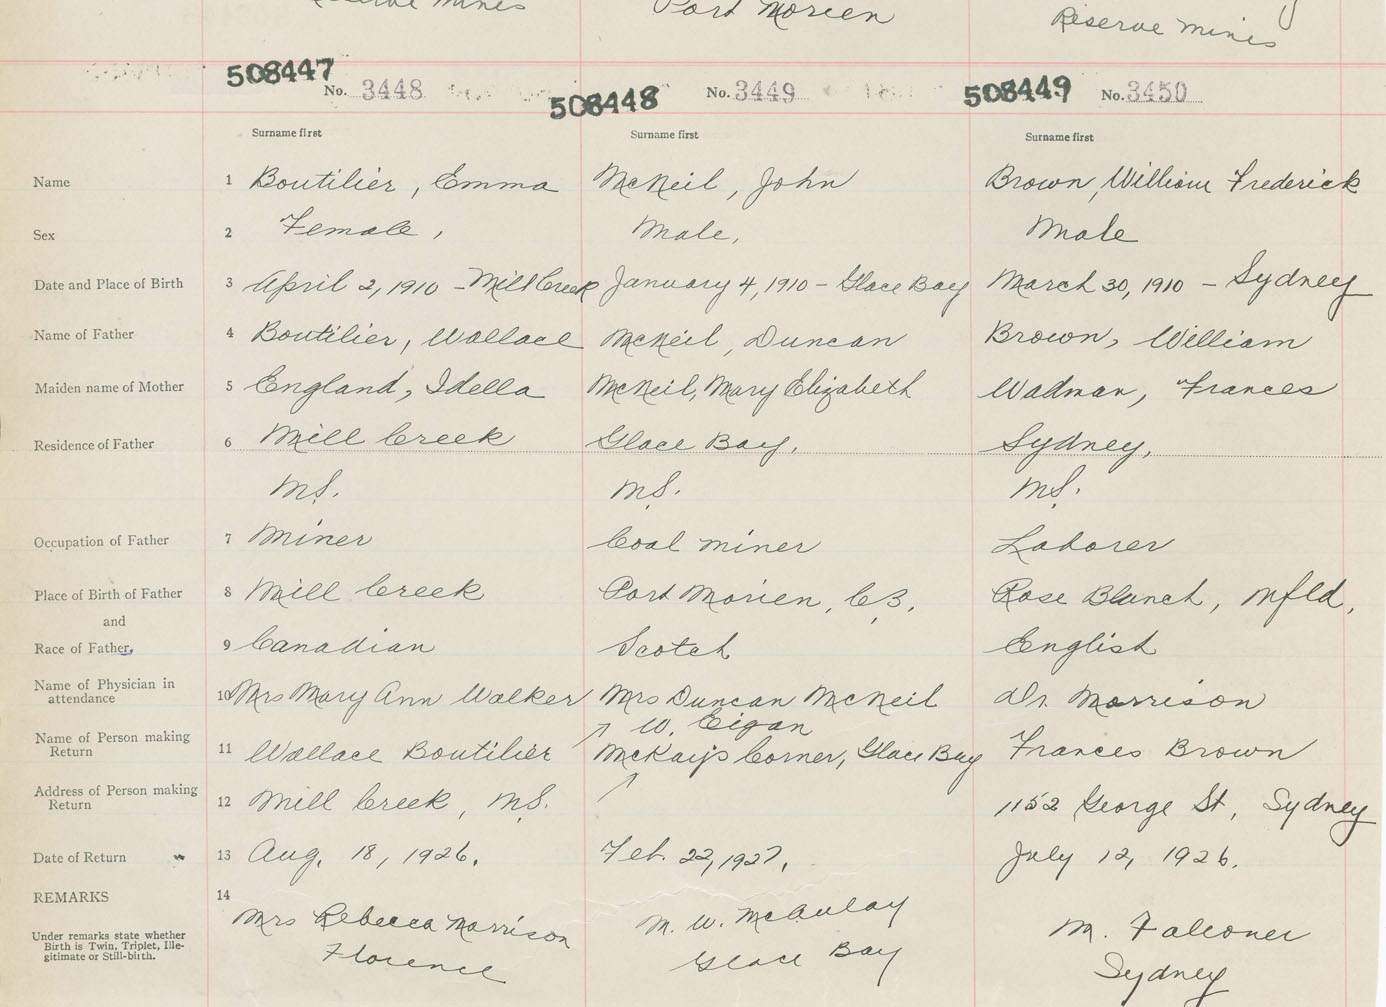 Reserve Mines Port Morien Reserve Mines
508447 No. 3448 508448 No. 3449 508449 No. 3450
Surname first Surname first Surname first
Name 1 Boutilier, Emma McNeil, John Brown, William Frederick
Sex 2 Female, Male, Male
Date and Place of Birth 3 April 2, 1910 - Mill Creek January 4, 1910 - Glace Bay March 30, 1910 - Sydney
Name of Father 4 Boutilier, Wallace McNeil, Duncan Brown, William
Maiden name of Mother 5 England, Idella McNeil, Mary Elizabeth Wadman, Frances
Residence of Father 6 Mill Creek Glace Bay, Sydney,
N.S. N.S. N.S.
Occupation of Father 7 Miner Coal miner Laborer
Place of Birth of Father 8 Mill Creek Port Morien, C.B, Rose Blanch, Nfld,
and
Race of Father, 9 Canadian Scotch English
Name of Physician in attendance 10 Mrs Mary Ann Walker Mrs Duncan McNeil Dr. Morrison
W. Eigan
Name of Person making Return 11 Wallace Boutilier McKay's Corner, Glace Bay Frances Brown
Address of Person making Return 12 Mill Creek, N.S. 1152 George St, Sydney
Date of Return 13 Aug, 18, 1926, Feb. 22, 1927, July 12, 1926.
REMARKS 14
Under remarks state whether Birth is Twin, Triplet, Ille-
gitimate or Still-birth.
Mrs Rebecca Morrison M. W. McAulay M. Falconer
Florence Glace Bay Sydney